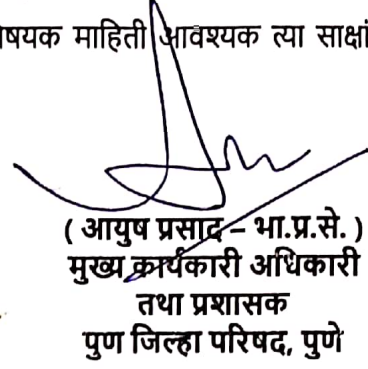 षयक माहिती आवश्यक त्या साक्षां
( आयुष प्रसाद – भा.प्र.से. )
मुख्य कार्यकारी अधिकारी
तथा प्रशासक
पुण जिल्हा परिषद, पुणे